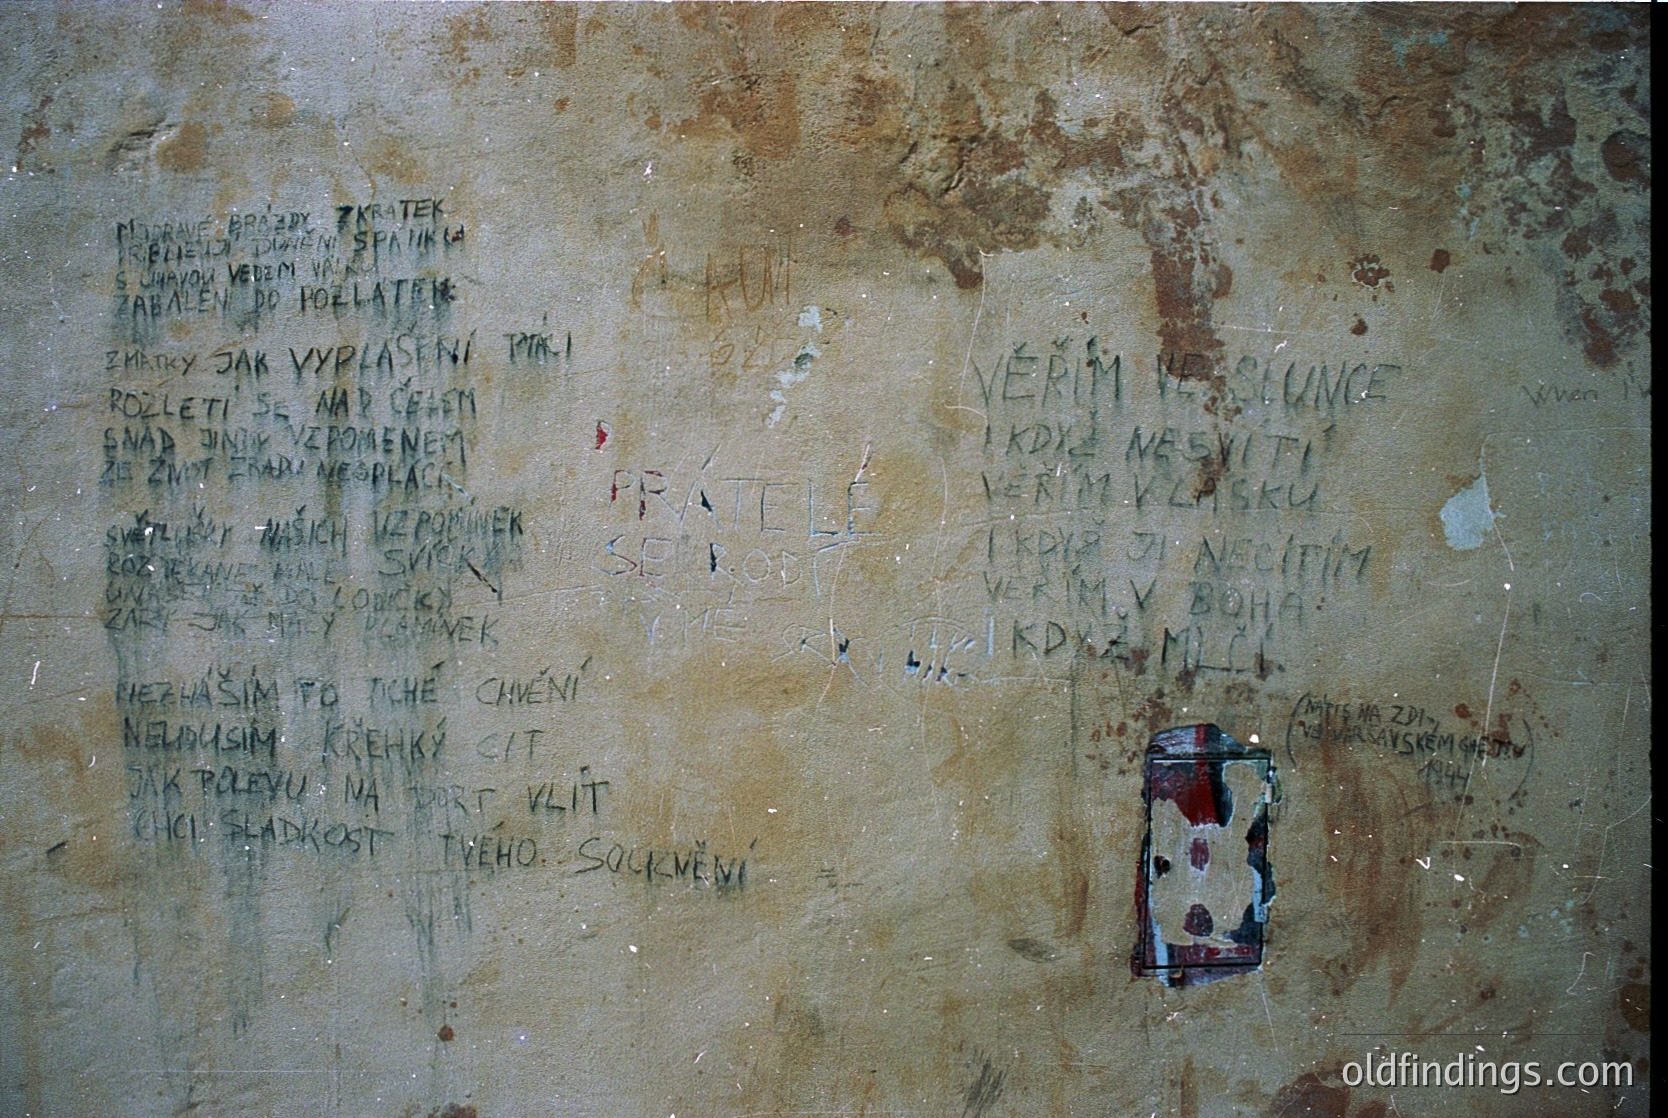 MODRAVÉ BRÁZDY ZKRATEK
DUNĚNÍ SPÁNKU
S VEDEM
ZABALEN DO POZLÁTEK
ZMATKY JAK VYPLAŠENÍ PTÁCI
ROZLETÍ SE NAD ČELEM
SNAD JINDY VZPOMENEM
ŽE ŽIVOT ZRADU NESPLÁCÍ
SVĚTLUŠKY NAŠICH VZPOMÍNEK
MALÉ SVÍČKY
DO LODIČKY
ZÁŘÍ JAK MALÝ PLAMÍNEK
NEZHÁŠÍM TO TICHÉ CHVĚNÍ
NEUDUSÍM KŘEHKÝ CIT
JAK POLEVU NA DORT VLÍT
CHCI SLADKOST TVÉHO SOUKNĚNÍ
PRÁTELÉ
SE RODÍ
V MÉ
VĚŘÍM VE SLUNCE
I KDYŽ NESVÍTÍ
VĚŘÍM V LÁSKU
I KDYŽ JI NECÍTÍM
VĚŘÍM V BOHA
I KDYŽ MLČÍ.
(NÁPIS NA ZDI
VE VARŠAVSKÉM GHETTU
1944)
When
oldfindings.com